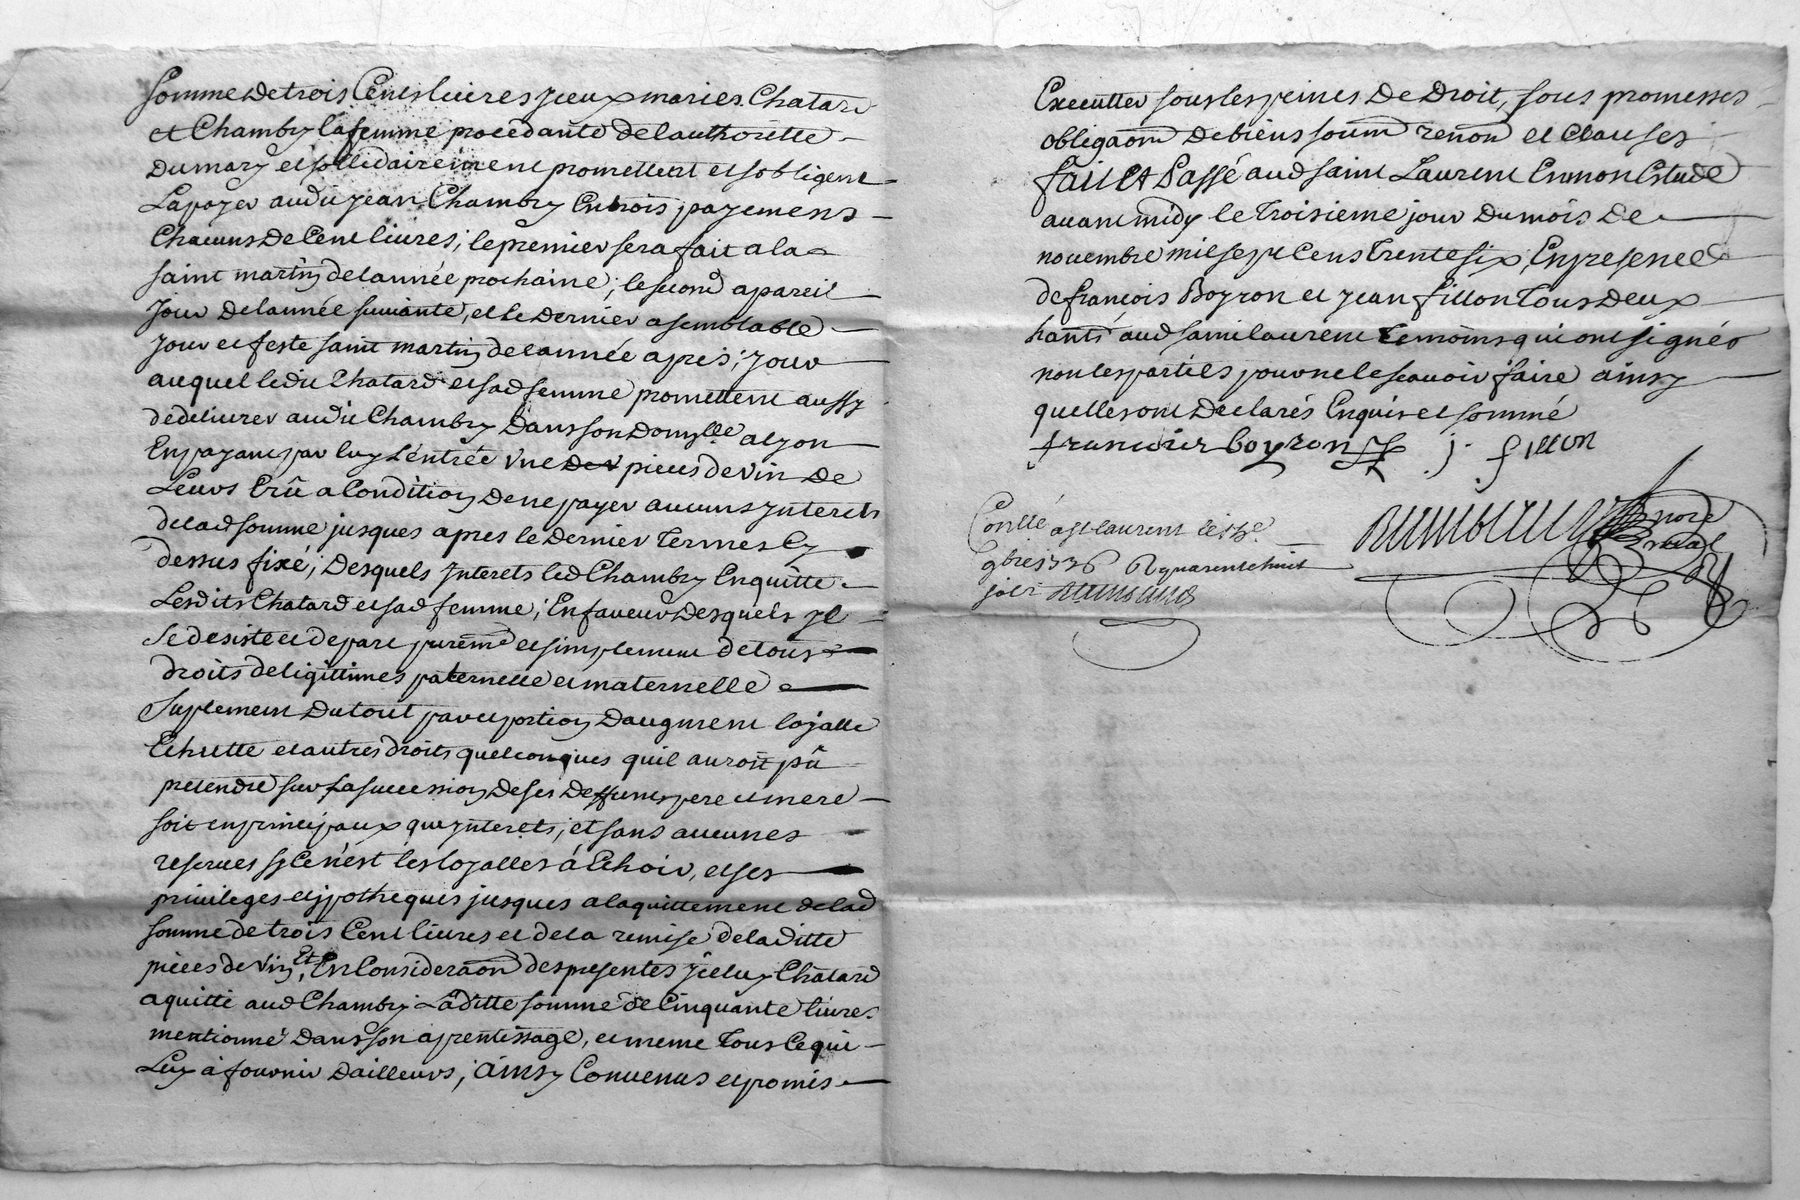 somme de trois Cens livres yceux mariés Chatard
et Chambry la femme procedante de lauthoritté
du mary et sollidairement promettent et sobligent
La payer audit jean Chambry En trois payemens
Chacuns de Cent livres ; le premier sera fait a la
saint martin de lannée prochaine ; le second a pareil
jour de lannée suivante, et le dernier a semblable
jour et feste saint martin de lannée apres ; jour
auquel ledit Chatard et sad femme promettent aussy
de delivrer audit Chambry dans son domylle a lyon
En payant par luy L'entrée vne pieces de vin de
Leurs Crû a Condition de ne payer aucuns ynterets
de lad somme jusques apres le dernier Termes Cy
dessus fixé ; desquels ynterets led Chambry En quitte
Lesdits Chatard et sad femme ; En faveur desquels yl
se desiste et depart purem̄t et simplement de tous
droits de ligittimes paternelle et maternelle
Suplement du tout part et portion daugment loyalle
Echutte et autres droits quelconques quil auroit pû
pretendre sur la succession de ses deffunts pere et mere
soit en principaux que ynterets ; et sans aucunes
reserves sy Ce n'est les loyalles à Echoir, et ses
privileges et ypotheques jusques a laquittement de lad
somme de trois Cent livres et de la remise de laditte
pieces de vin, Et En Considera͠on des presentes yceluy Chatard
a quitté aud Chambry Laditte somme de Cinquante livres
mentionné dans son aprentissage, et meme Tous Ce qui
Luy à fournir dailleurs ; ainsy Convenus et promis
Executter sous les peines de droit, sous promesses
obliga͠on de biens soum̄ renōn et Clauses
fait Et Passé aud saint Laurent En mon Estude
avant midy le Troisieme jour du mois de
novembre mil sept Cens trente six, En presence
de françois Boyron et jean fillon Tous deux
haīttˢ aud saint laurent Temoins qui ont signés
non les partiës pour ne le scavoir faire ainsy
quelles ont declarés Enquis et sommé
francoir boyron j. fillon
Con.llé a st laurent le 13e
9bre 1736 R quarente huit